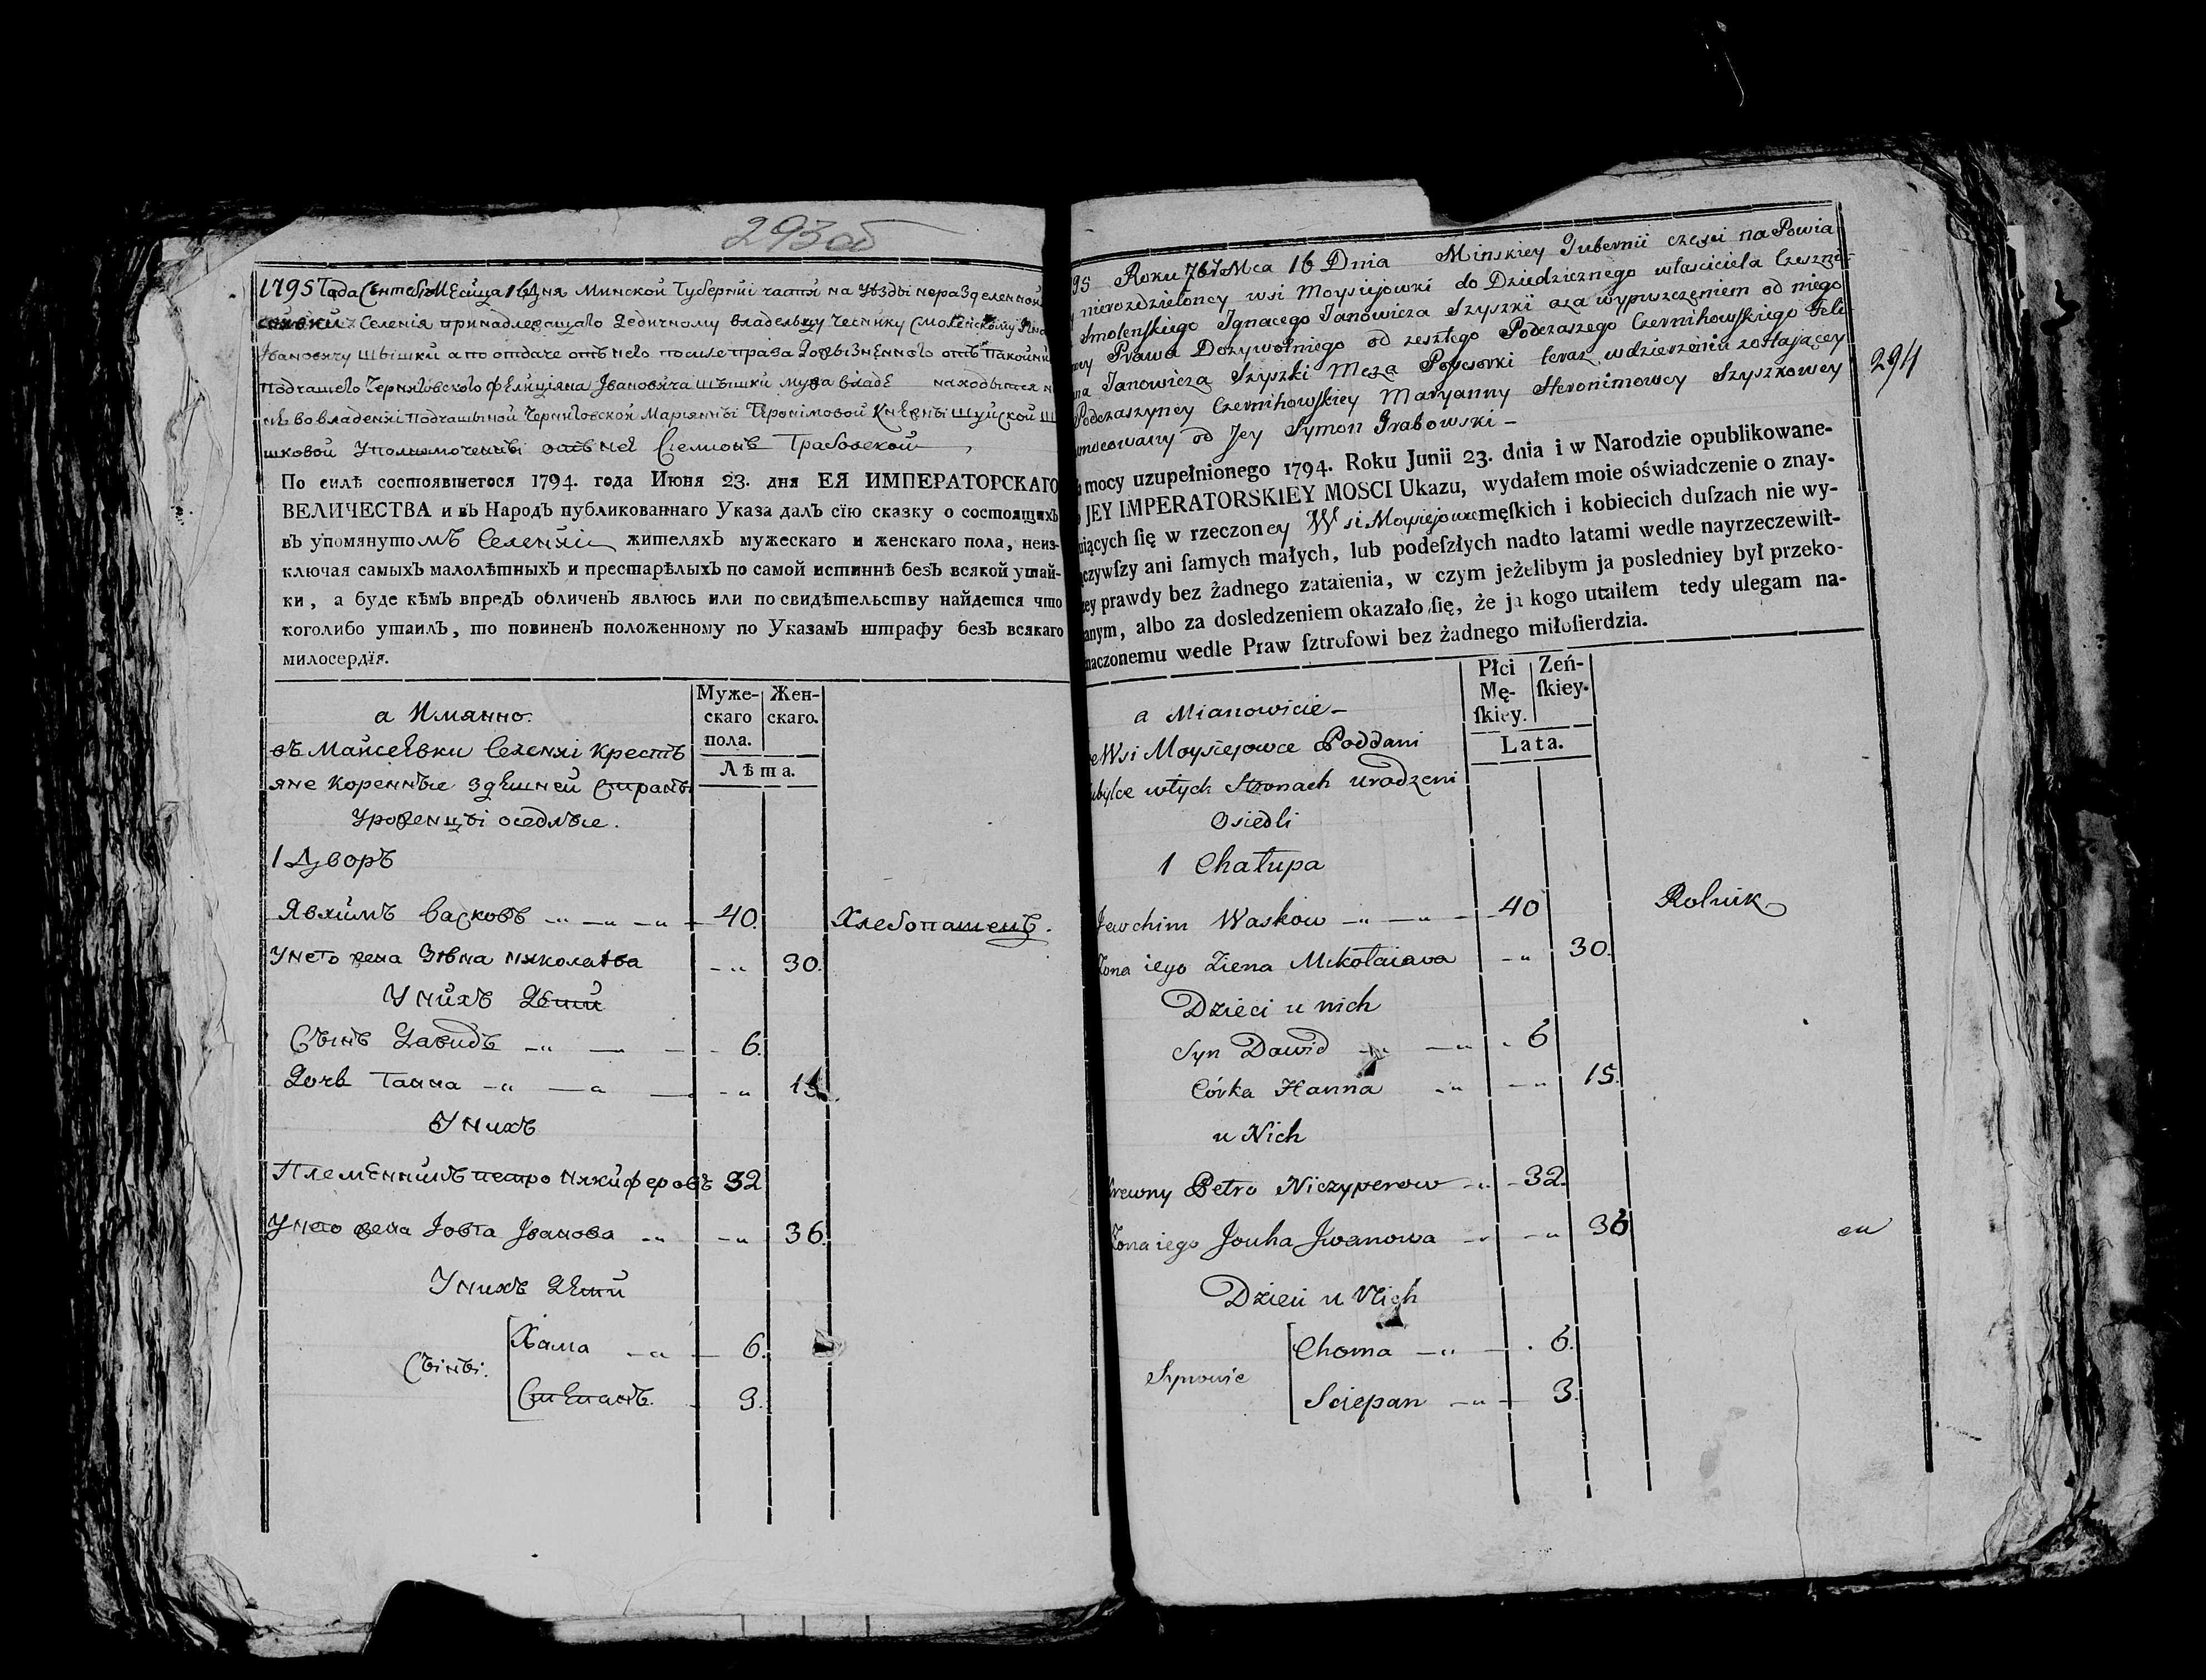 293 об
1795 Года Сентебра Месяца 16 Дня Минской Губернiи части на уезды неразделенной
Селенiя принадлежащаго Дедичному владельцу Чеснику Смоленскому
Ивановичу Шышки а по отдаче отъ него после права Дожызненного отъ Пакойни
Подчашего Черниговского Фелицiяна Ивановича Шышки мужа владе находытся н
не во владенiи Подчашыной Черниговской Марiянны Геронiмовой Княжны Шуйской Ш
шковой Уполномоченны отъ нея Семионъ Грабовской
По силѣ состоявшегося 1794. года Июня 23. дня ЕЯ ИМПЕРАТОРСКАГО
ВЕЛИЧЕСТВА и въ Народъ публикованнаго Указа далъ сїю сказку о состоящихъ
въ упомянутомъ Селенiи жителяхъ мужескаго и женскаго пола, неиз-
ключая самыхъ малолѣтныхъ и престарѣлыхъ по самой истиннѣ безъ всякой утай-
ки, а буде кѣмъ впредъ обличенъ явлюсь или по свидѣтельству найдется что
коголибо утаилъ, то повиненъ положенному по Указамъ штрафу безъ всякаго
милосердїя.
а Имянно.
Муже-
скаго
пола.
Жен-
скаго.
Лѣта.
въ Майсеевки Селенiи Крестъ
яне коренные здешней Страны
Уроженцы оседлые.
1 Дворъ
Явхимъ Васковъ 40. Хлебопашецъ.
У него жена Зѣвна Николаева 30.
У нихъ Дети
Сынъ Давидъ 6.
Дочь Ганна 15
У нихъ
Племенникъ петро Никиферовъ 32
У него жена Iовга Iванова 36.
У нихъ Дети
Сыны.
Хама 6.
Степанъ. 3.
294
95 Roku 7br Mca 16 Dnia Minskiey Gubernii części na Powia
nierozdzieloney wsi Moysiejowki do Dziedzicznego własciciela Czesni-
Smolenskiego Ignacego Janowicza Szyszki a za wypuszczeniem od niego
Prawa Dozywotniego od zeszłego Podczaszego Czernihowskiego Feli
na Janowicza Szyszki Męza Possesorki teraz w dzierzeniu zostającey
Podczaszyney Czernihowskiey Maryanny Heronimowey Szyszkowey
umocowany od Jey Symon Grabowski –
mocy uzupełnionego 1794. Roku Junii 23. dnia i w Narodzie opublikowane-
JEY IMPERATORSKIEY MOSCI Ukazu, wydałem moie oświadczenie o znay-
uiących ſię w rzeczoney Wsi Moysiejowce męſkich i kobiecich duſzach nie wy-
ączywſzy ani ſamych małych, lub podeſzłych nadto latami wedle nayrzeczewiſt-
zey prawdy bez żadnego zataienia, w czym jeżelibym ja posledniey był przeko-
anym, albo za dosledzeniem okazało ſię, że ja kogo utaiłem tedy ulegam na-
naczonemu wedle Praw ſztrofowi bez żadnego miłoſierdzia.
a Mianowicie –
Płci
Mę-
ſkiey.
Zeń-
ſkiey.
Lata.
We Wsi Moysiejowce Poddani
ubylce w tych Stronach urodzeni
Osiedli
1 Chałupa
Jewchim Waskow 40 Rolnik
Zona iego Ziena Mikołaiawa 30.
Dzieci u nich
Syn Dawid 6
Córka Hanna 15.
u Nich
Krewny Petro Niczyperow 32.
Zona iego Jouha Jwanowa 36
Dzieci u Nich
Synowie
Choma 6.
Sciepan 3.